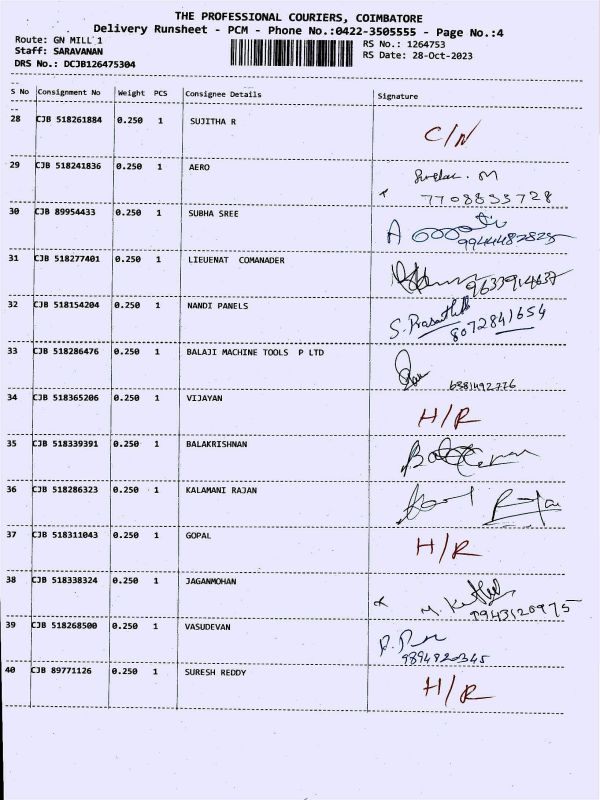 THE PROFESSIONAL COURIERS, COIMBATORE
Delivery Runsheet - PCM - Phone No.:0422-3505555 - Page No.:4
Route: GN MILL 1 RS No.: 1264753
Staff: SARAVANAN RS Date: 28-Oct-2023
DRS No.: DCJB126475304
S No Consignment No Weight PCS Consignee Details Signature
28 CJB 518261884 0.250 1 SUJITHA R C/N
29 CJB 518241836 0.250 1 AERO
7708833728
30 CJB 89954433 0.250 1 SUBHA SREE
9944482825
31 CJB 518277401 0.250 1 LIEUENAT COMANADER 9633914637
32 CJB 518154204 0.250 1 NANDI PANELS S. Prasanth
8072841654
33 CJB 518286476 0.250 1 BALAJI MACHINE TOOLS P LTD
6381492776
34 CJB 518365206 0.250 1 VIJAYAN H/R
35 CJB 518339391 0.250 1 BALAKRISHNAN
36 CJB 518286323 0.250 1 KALAMANI RAJAN
37 CJB 518311043 0.250 1 GOPAL H/R
38 CJB 518338324 0.250 1 JAGANMOHAN
39 CJB 518268500 0.250 1 VASUDEVAN
9894820345
40 CJB 89771126 0.250 1 SURESH REDDY H/R